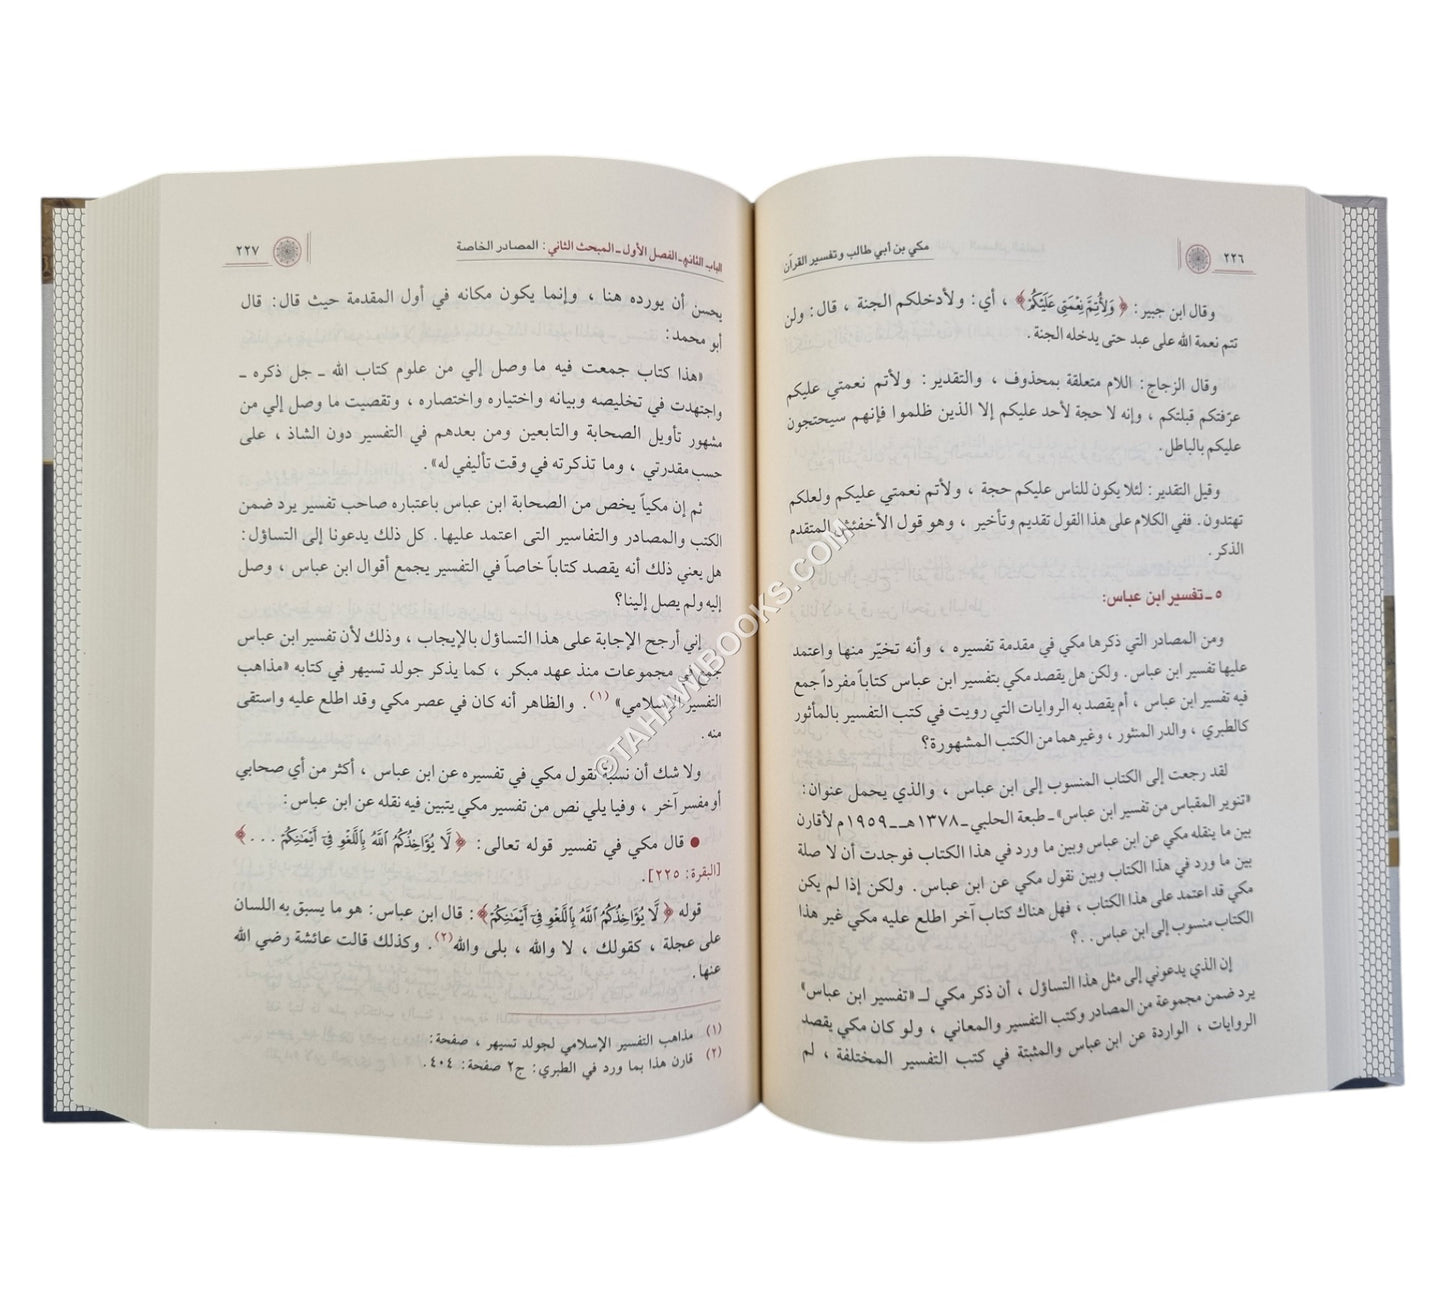 ٢٢٦
مكي بن أبي طالب وتفسير القرآن
وقال ابن جبير: ﴿وَلِأُتِمَّ نِعْمَتِي عَلَيْكُمْ﴾ ، أي: ولأدخلكم الجنة ، قال: ولن
تتم نعمة الله على عبد حتى يدخله الجنة.
وقال الزجاج: اللام متعلقة بمحذوف ، والتقدير: ولأتم نعمتي عليكم
عرّفتكم قبلتكم ، وإنه لا حجة لأحد عليكم إلا الذين ظلموا فإنهم سيحتجون
عليكم بالباطل.
وقيل التقدير: لئلا يكون للناس عليكم حجة ، ولأتم نعمتي عليكم ولعلكم
تهتدون. ففي الكلام على هذا القول تقديم وتأخير ، وهو قول الأخفش المتقدم
الذكر.
٥ ـ تفسير ابن عباس:
ومن المصادر التي ذكرها مكي في مقدمة تفسيره ، وأنه تخيّر منها واعتمد
عليها تفسير ابن عباس. ولكن هل يقصد مكي بتفسير ابن عباس كتاباً مفرداً جمع
فيه تفسير ابن عباس ، أم يقصد به الروايات التي رويت في كتب التفسير بالمأثور
كالطبري ، والدر المنثور ، وغيرهما من الكتب المشهورة؟
لقد رجعت إلى الكتاب المنسوب إلى ابن عباس ، والذي يحمل عنوان:
«تنوير المقباس من تفسير ابن عباس» ـ طبعة الحلبي ـ ١٣٧٨هـ ـ ١٩٥٩م لأقارن
بين ما ينقله مكي عن ابن عباس وبين ما ورد في هذا الكتاب فوجدت أن لا صلة
بين ما ورد في هذا الكتاب وبين نقول مكي عن ابن عباس. ولكن إذا لم يكن
مكي قد اعتمد على هذا الكتاب ، فهل هناك كتاب آخر اطلع عليه مكي غير هذا
الكتاب منسوب إلى ابن عباس..؟
إن الذي يدعوني إلى مثل هذا التساؤل ، أن ذكر مكي لـ «تفسير ابن عباس»
يرد ضمن مجموعة من المصادر وكتب التفسير والمعاني ، ولو كان مكي يقصد
الروايات ، الواردة عن ابن عباس والمثبتة في كتب التفسير المختلفة ، لم
الباب الثاني ـ الفصل الأول ـ المبحث الثاني: المصادر الخاصة
٢٢٧
يحسن أن يورده هنا ، وإنما يكون مكانه في أول المقدمة حيث قال: قال
أبو محمد:
«هذا كتاب جمعت فيه ما وصل إلي من علوم كتاب الله ـ جل ذكره ـ
واجتهدت في تخليصه وبيانه واختياره واختصاره ، وتقصيت ما وصل إلي من
مشهور تأويل الصحابة والتابعين ومن بعدهم في التفسير دون الشاذ ، على
حسب مقدرتي ، وما تذكرته في وقت تأليفي له».
ثم إن مكياً يخص من الصحابة ابن عباس باعتباره صاحب تفسير يرد ضمن
الكتب والمصادر والتفاسير التى اعتمد عليها. كل ذلك يدعونا إلى التساؤل:
هل يعني ذلك أنه يقصد كتاباً خاصاً في التفسير يجمع أقوال ابن عباس ، وصل
إليه ولم يصل إلينا؟
إني أرجح الإجابة على هذا التساؤل بالإيجاب ، وذلك لأن تفسير ابن عباس
مجموعات منذ عهد مبكر ، كما يذكر جولد تسيهر في كتابه «مذاهب
التفسير الإسلامي» (١). والظاهر أنه كان في عصر مكي وقد اطلع عليه واستقى
منه.
ولا شك أن نسبة نقول مكي في تفسيره عن ابن عباس ، أكثر من أي صحابي
أو مفسر آخر ، وفيا يلي نص من تفسير مكي يتبين فيه نقله عن ابن عباس:
● قال مكي في تفسير قوله تعالى: ﴿لَا يُؤَاخِذُكُمُ اللَّهُ بِاللَّغْوِ فِي أَيْمَانِكُمْ . . .﴾
[البقرة: ٢٢٥].
قوله ﴿لَا يُؤَاخِذُكُمُ اللَّهُ بِاللَّغْوِ فِي أَيْمَانِكُمْ﴾: قال ابن عباس: هو ما يسبق به اللسان
على عجلة ، كقولك ، لا والله ، بلى والله(٢). وكذلك قالت عائشة رضي الله
عنها.
(١) مذاهب التفسير الإسلامي لجولد تسيهر ، صفحة:
(٢) قارن هذا بما ورد في الطبري: ج٢ صفحة: ٤٠٤.
©TAHAWIBOOKS.COM